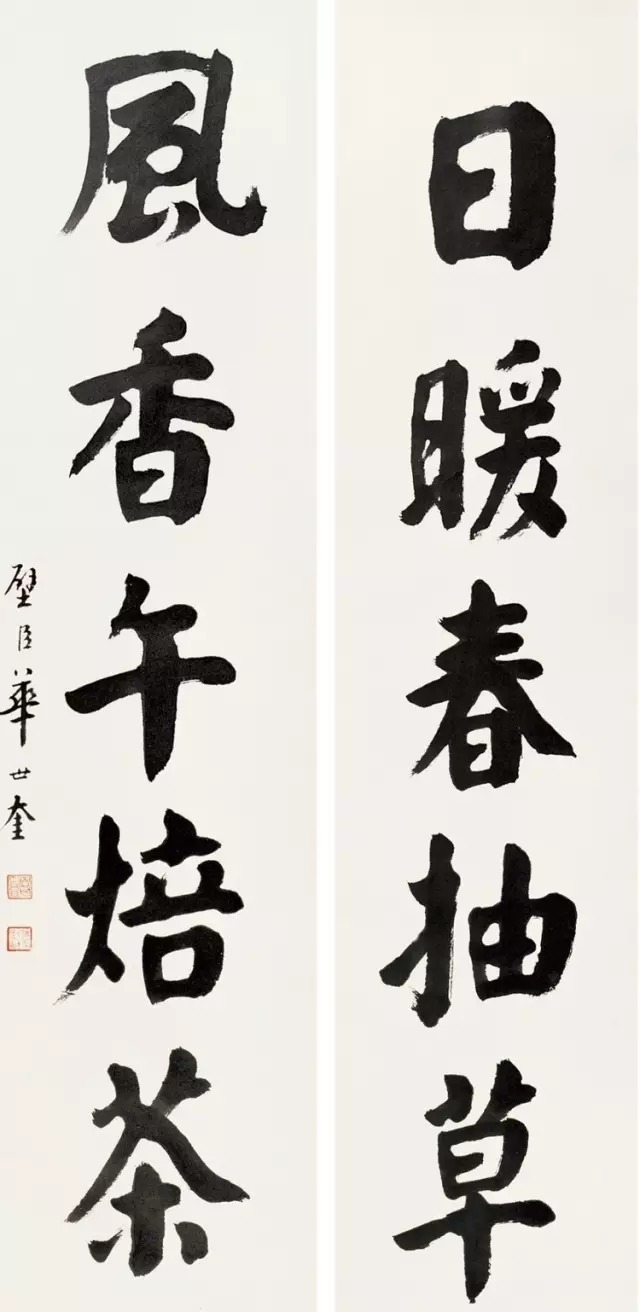 日暖春抽草
風香午焙茶
壁臣華世奎